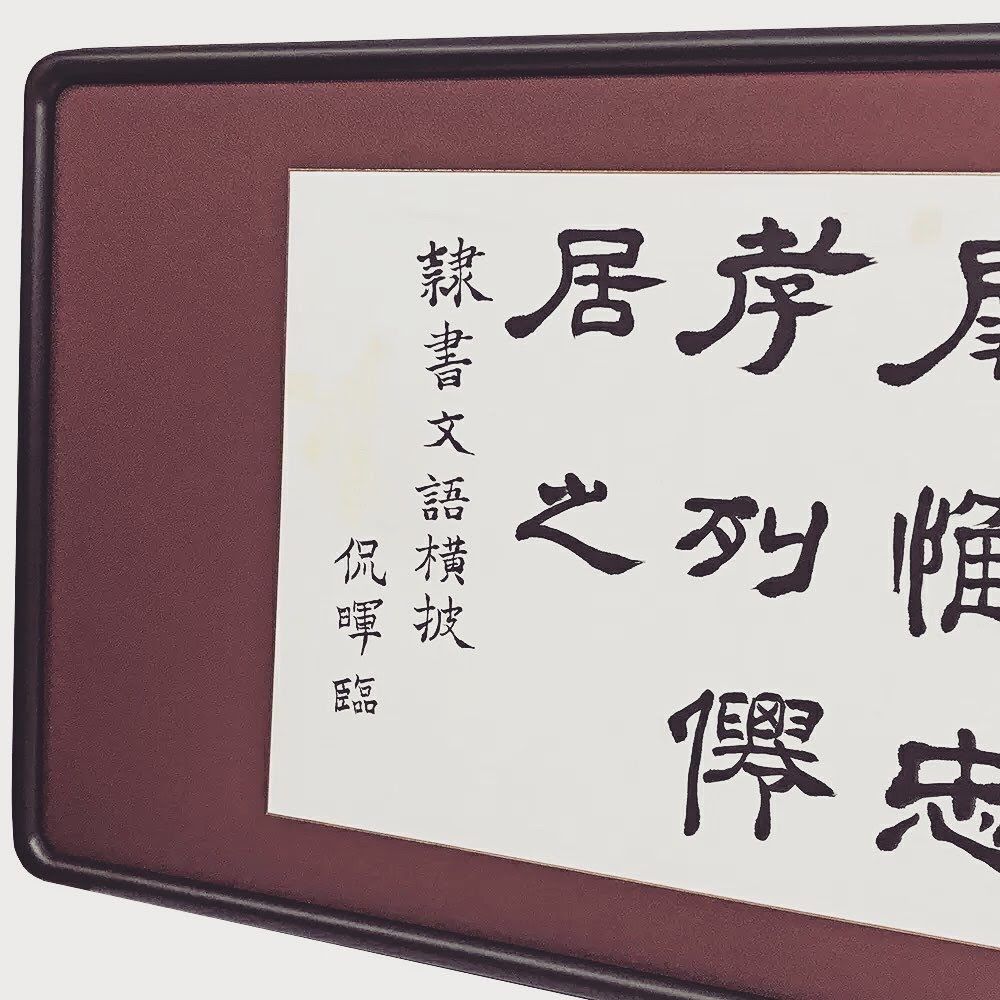 惟忠
孝列僊
居之
隸書文語橫披
侃暉臨